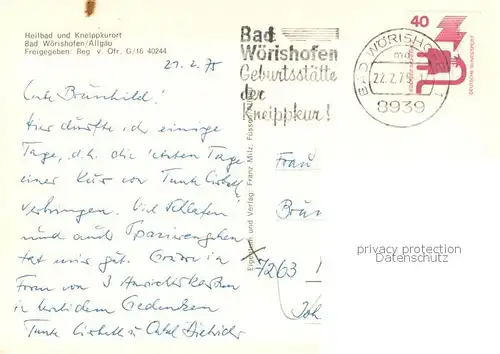 Heilbad und Kneippkurort
Bad Wörishofen/Allgäu
Freigegeben: Reg. v. Ofr. G/16 40244
21.2.75
Bad
Wörishofen
Geburtsstätte
der
Kneippkur!
BAD WÖRISHOFEN
22.2.75
8939
40
DEUTSCHE BUNDESPOST
Liebe Brunhild!
Hier durfte ich einige
Tage, d.h. die letzten Tage
einer Kur von Tante Lisbeth
verbringen. Viel Schlafen
und auch Spazierengehen
tat mir gut.
Form von 3 Ansichtskarten
in herzlichem Gedenken
Tante Lisbeth u. Onkel Dietrich
Eigentum und Verlag: Franz Milz, Füssen
Frau
Brun
7263
privacy protection
Datenschutz